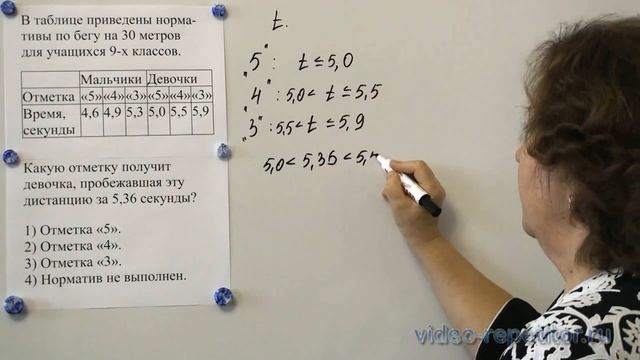 В таблице приведены норма-
тивы по бегу на 30 метров
для учащихся 9-х классов.
Мальчики Девочки
Отметка «5» «4» «3» «5» «4» «3»
Время, секунды 4,6 4,9 5,3 5,0 5,5 5,9
Какую отметку получит
девочка, пробежавшая эту
дистанцию за 5,36 секунды?
1) Отметка «5».
2) Отметка «4».
3) Отметка «3».
4) Норматив не выполнен.
t.
„5": t ≤ 5,0
„4": 5,0 < t ≤ 5,5
„3": 5,5 < t ≤ 5,9
5,0 < 5,36 < 5,
video-repetitor.ru